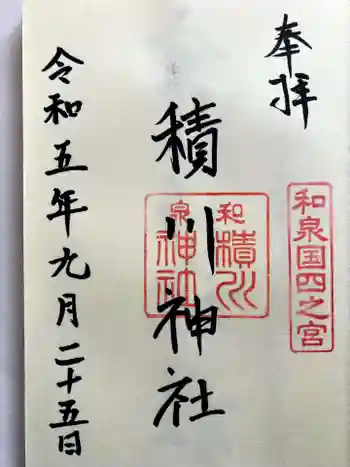 奉拝
和泉国四之宮
積川神社
和泉
積川
神社
令和五年九月二十五日